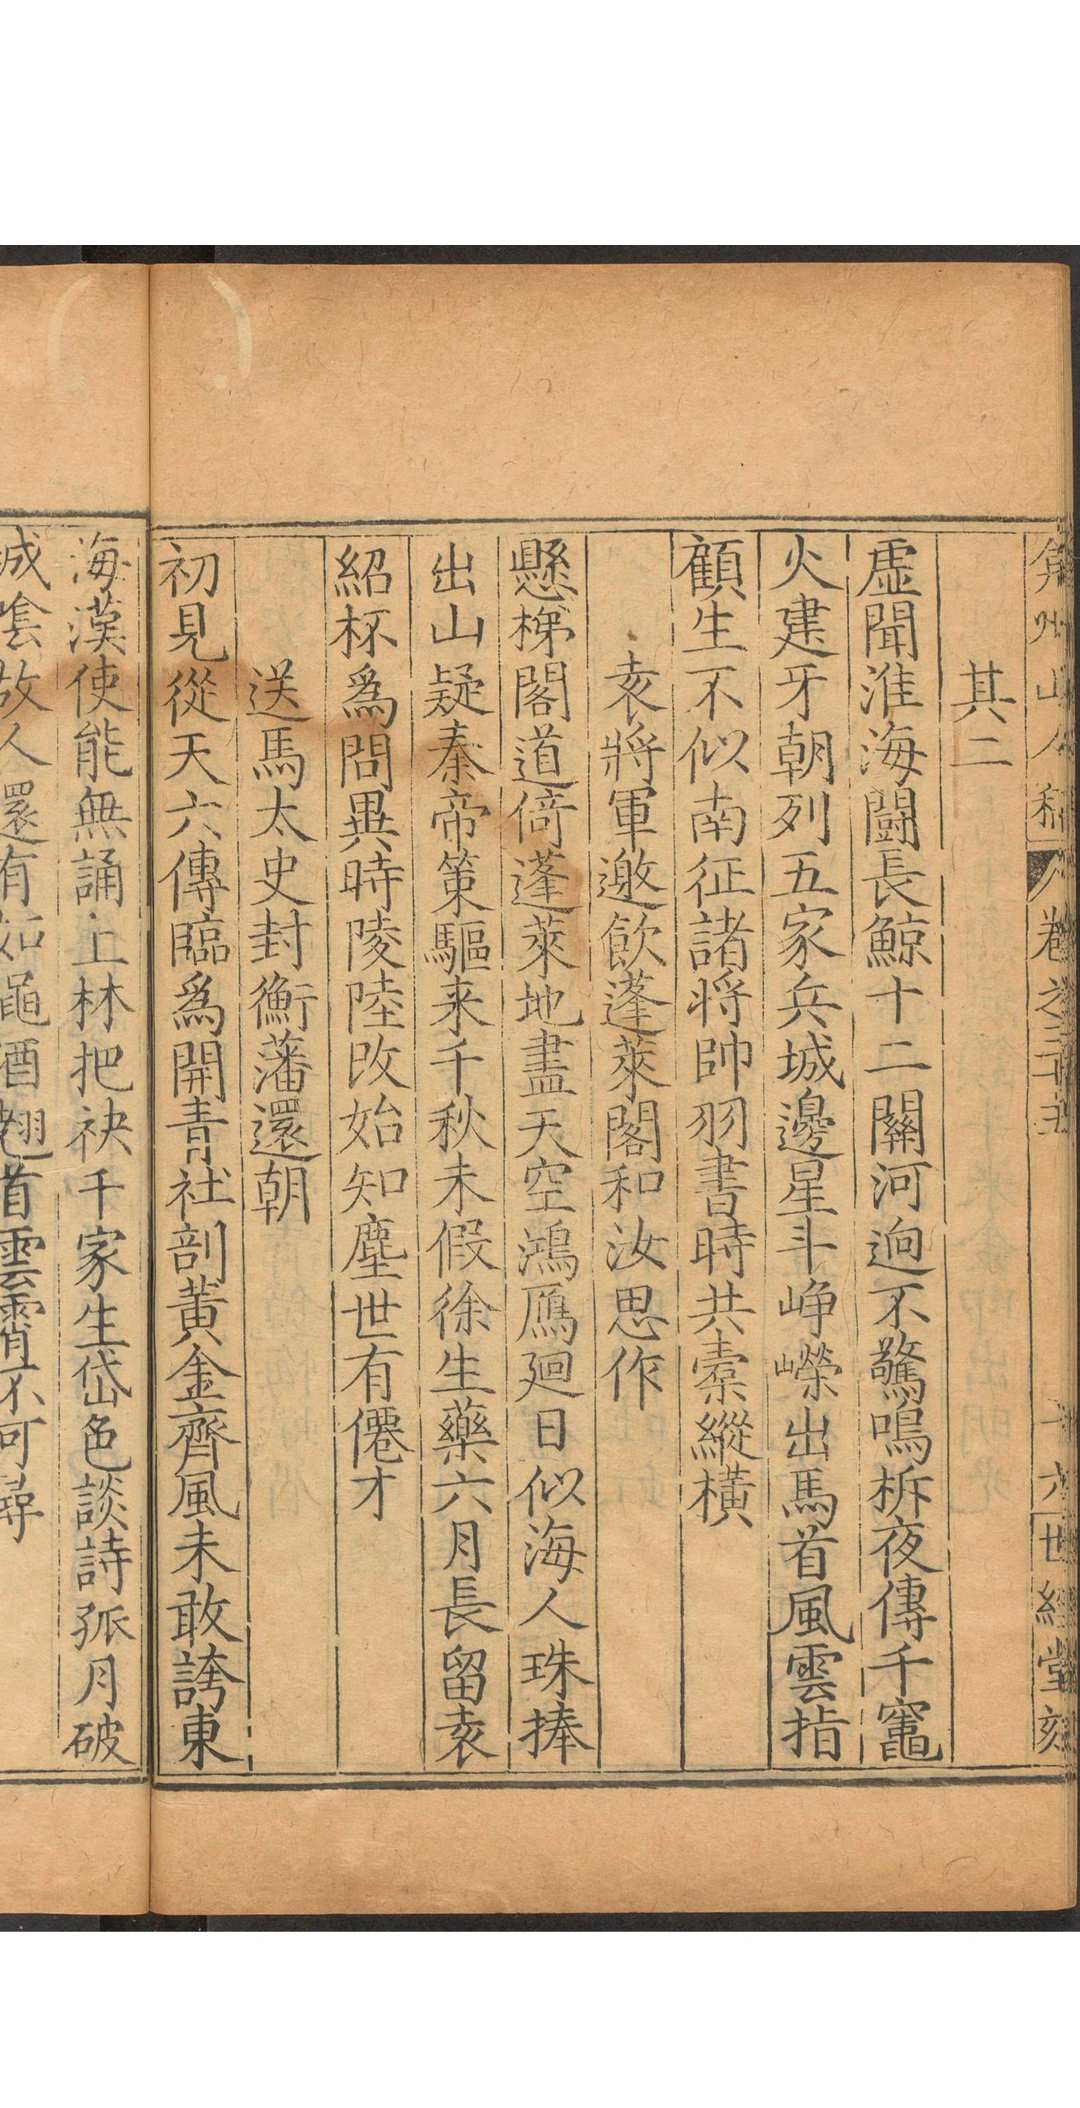 弇州山人稿 卷之三十五 十六 世經堂刻
其二
虛聞淮海鬪長鯨十二關河迥不驚鳴柝夜傳千竈
火建牙朝列五家兵城邊星斗崢嶸出馬首風雲指
顧生不似南征諸將帥羽書時共橐縱橫
袁將軍邀飲蓬萊閣和汝思作
懸梯閣道倚蓬萊地盡天空鴻鴈廻日似海人珠捧
出山疑秦帝策驅来千秋未假徐生藥六月長留袁
紹杯爲問異時陵陸改始知塵世有僊才
送馬太史封衡藩還朝
初見從天六傳臨爲開青社剖黃金齊風未敢誇東
海漢使能無誦上林把袂千家生岱色談詩孤月破
城陰故人還有如澠酒翹首雲霄不可尋